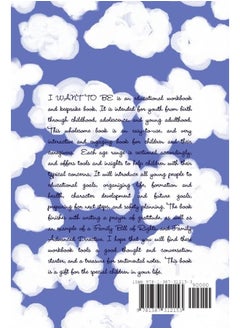 I WANT TO BE is an educational workbook
and keepsake book. It is intended for youth from birth
through childhood, adolescence and young adulthood.
This wholesome book is an easy-to-use and very
interactive and engaging book for children and their
caregivers. Each age range is outlined accordingly,
and offers tools and insights to help children with their
typical concerns. It will introduce all young people to
educational goals, organizing life, formation and
health, character development and future goals,
preparing for next steps, and safety planning. The book
finishes with writing a prayer of gratitude, as well as
an example of a Family Bill of Rights and Family
Advanced Directive. I hope that you will find these
workbook tools a good thought and conversation
starter, and a treasure for sentimental notes. This book
is a gift for the special children in your life.
90000